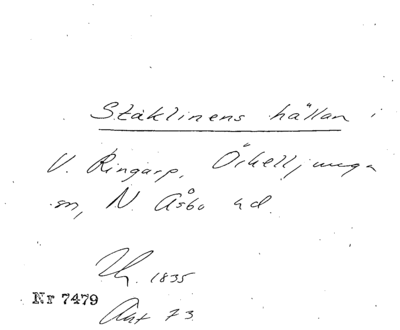 Stäklinens hällan i
V. Ringarp, Örkelljunga
sn, N. Åsbo hd.
1835
Nr 7479
73